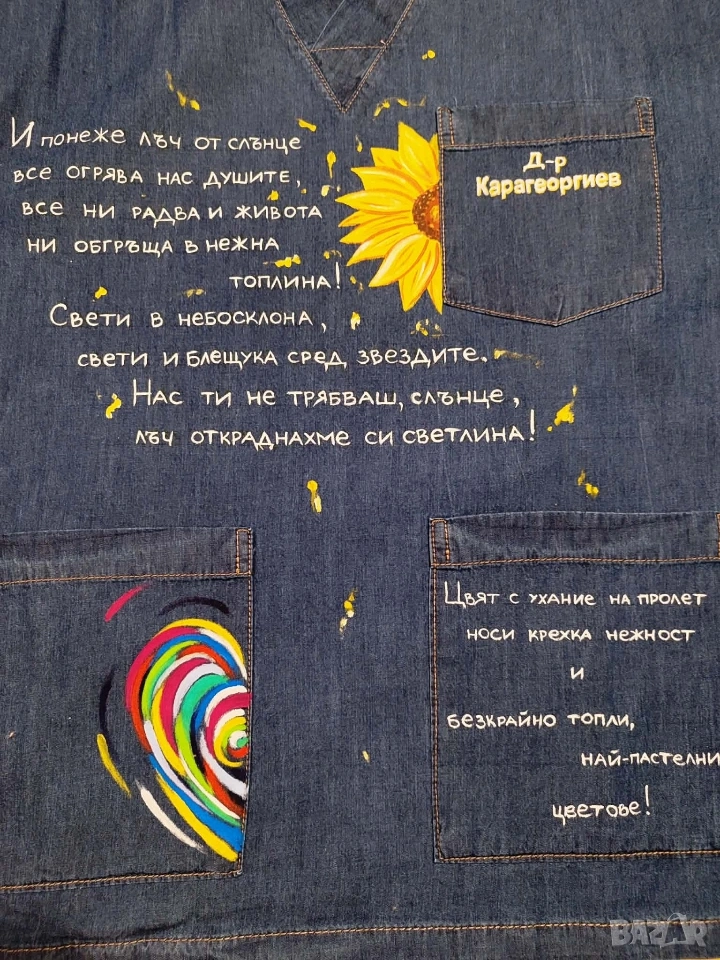 И понеже лъч от слънце
все огрява нас душите,
все ни радва и живота
ни обгръща в нежна
топлина!
Свети в небосклона,
свети и блещука сред звездите.
Нас ти не трябваш, слънце,
лъч откраднахме си светлина!
Д-р
Карагеоргиев
Цвят с ухание на пролет
носи крехка нежност
и
безкрайно топли,
най-пастелни
цветове!
BAZAR